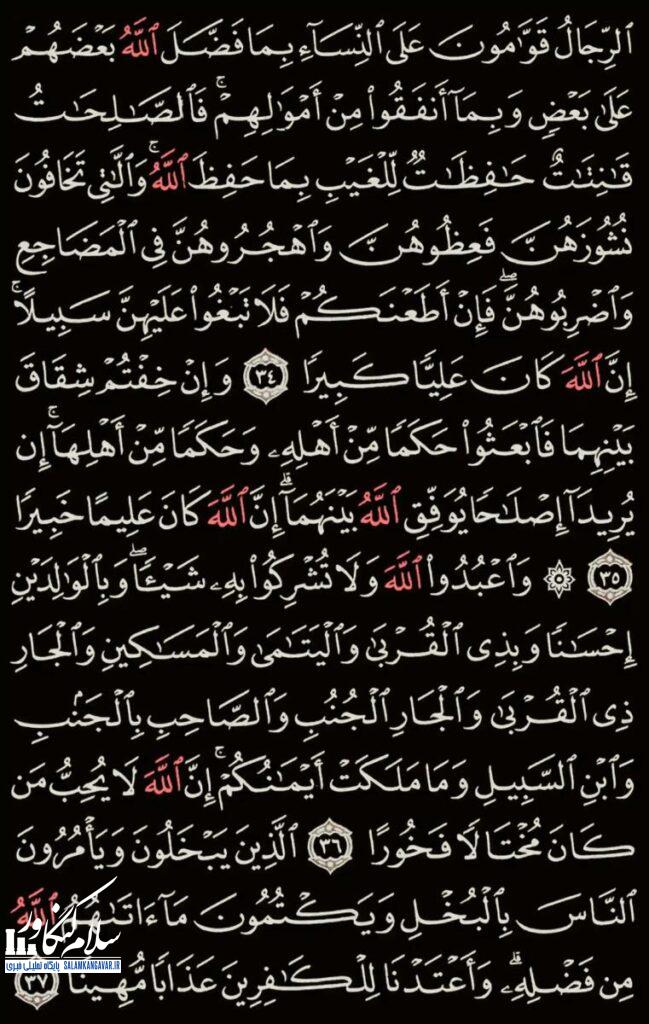 ٱلرِّجَالُ قَوَّٰمُونَ عَلَى ٱلنِّسَآءِ بِمَا فَضَّلَ ٱللَّهُ بَعۡضَهُمۡ
عَلَىٰ بَعۡضٖ وَبِمَآ أَنفَقُواْ مِنۡ أَمۡوَٰلِهِمۡۚ فَٱلصَّٰلِحَٰتُ
قَٰنِتَٰتٌ حَٰفِظَٰتٞ لِّلۡغَيۡبِ بِمَا حَفِظَ ٱللَّهُۚ وَٱلَّٰتِي تَخَافُونَ
نُشُوزَهُنَّ فَعِظُوهُنَّ وَٱهۡجُرُوهُنَّ فِي ٱلۡمَضَاجِعِ
وَٱضۡرِبُوهُنَّۖ فَإِنۡ أَطَعۡنَكُمۡ فَلَا تَبۡغُواْ عَلَيۡهِنَّ سَبِيلًاۗ
إِنَّ ٱللَّهَ كَانَ عَلِيّٗا كَبِيرٗا ٣٤ وَإِنۡ خِفۡتُمۡ شِقَاقَ
بَيۡنِهِمَا فَٱبۡعَثُواْ حَكَمٗا مِّنۡ أَهۡلِهِۦ وَحَكَمٗا مِّنۡ أَهۡلِهَآ إِن
يُرِيدَآ إِصۡلَٰحٗا يُوَفِّقِ ٱللَّهُ بَيۡنَهُمَآۗ إِنَّ ٱللَّهَ كَانَ عَلِيمًا خَبِيرٗا
٣٥ ۞ وَٱعۡبُدُواْ ٱللَّهَ وَلَا تُشۡرِكُواْ بِهِۦ شَيۡـٔٗاۖ وَبِٱلۡوَٰلِدَيۡنِ
إِحۡسَٰنٗا وَبِذِي ٱلۡقُرۡبَىٰ وَٱلۡيَتَٰمَىٰ وَٱلۡمَسَٰكِينِ وَٱلۡجَارِ
ذِي ٱلۡقُرۡبَىٰ وَٱلۡجَارِ ٱلۡجُنُبِ وَٱلصَّاحِبِ بِٱلۡجَنۢبِ
وَٱبۡنِ ٱلسَّبِيلِ وَمَا مَلَكَتۡ أَيۡمَٰنُكُمۡۗ إِنَّ ٱللَّهَ لَا يُحِبُّ مَن
كَانَ مُخۡتَالٗا فَخُورًا ٣٦ ٱلَّذِينَ يَبۡخَلُونَ وَيَأۡمُرُونَ
ٱلنَّاسَ بِٱلۡبُخۡلِ وَيَكۡتُمُونَ مَآ ءَاتَىٰهُمُ ٱللَّهُ
مِن فَضۡلِهِۦۗ وَأَعۡتَدۡنَا لِلۡكَٰفِرِينَ عَذَابٗا مُّهِينٗا ٣٧
سلام کنگاور
پایگاه تحلیلی خبری SALAMKANGAVAR.IR